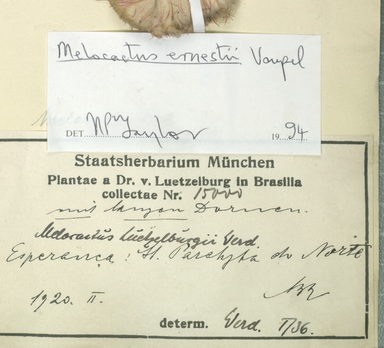 Melocactus ernestii Vaupel
DET. NP Taylor 1994
Staatsherbarium München
Plantae a Dr. v. Luetzelburg in Brasilia
collectae Nr. 15000
mit langen Dornen.
Melocactus Luetzelburgii Verd.
Esperança: St. Parahyba do Norte
1920. II.
determ. Verd. V/36.